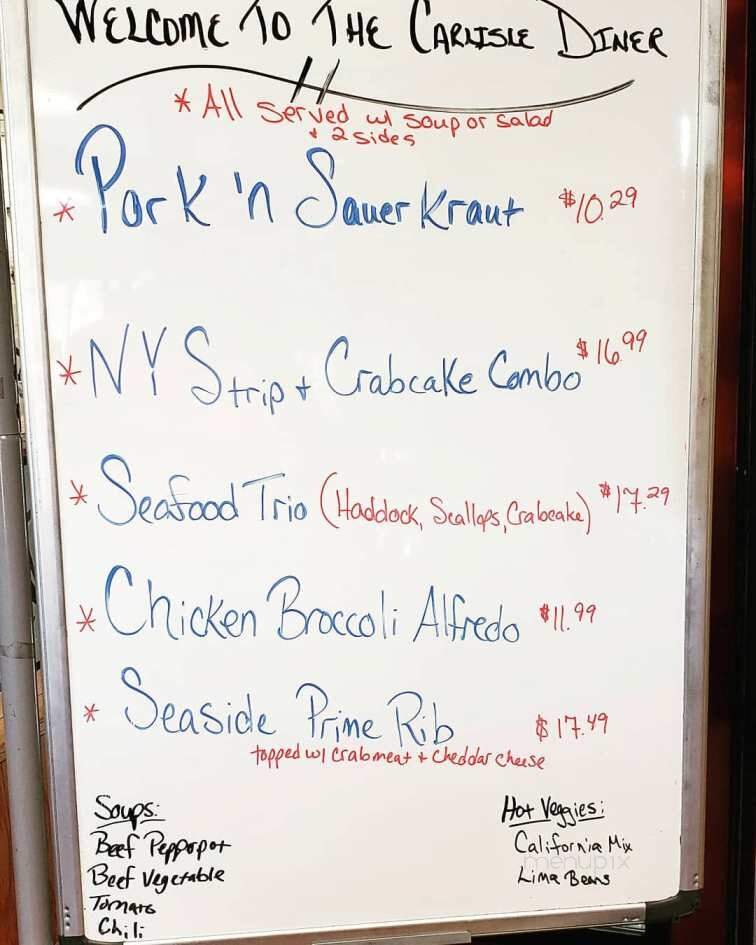 WELCOME TO THE CARLISLE DINER
* All served w/ soup or salad
+ 2 sides
* Pork 'n Sauerkraut $10.29
* NY Strip + Crabcake Combo $16.99
* Seafood Trio (Haddock, Scallops, Crabcake) $17.29
* Chicken Broccoli Alfredo $11.99
* Seaside Prime Rib $17.49
topped w/ Crabmeat + Cheddar cheese
Soups:
Beef Pepperpot
Beef Vegetable
Tomato
Chili
Hot Veggies:
California Mix
Lima Beans
menupix